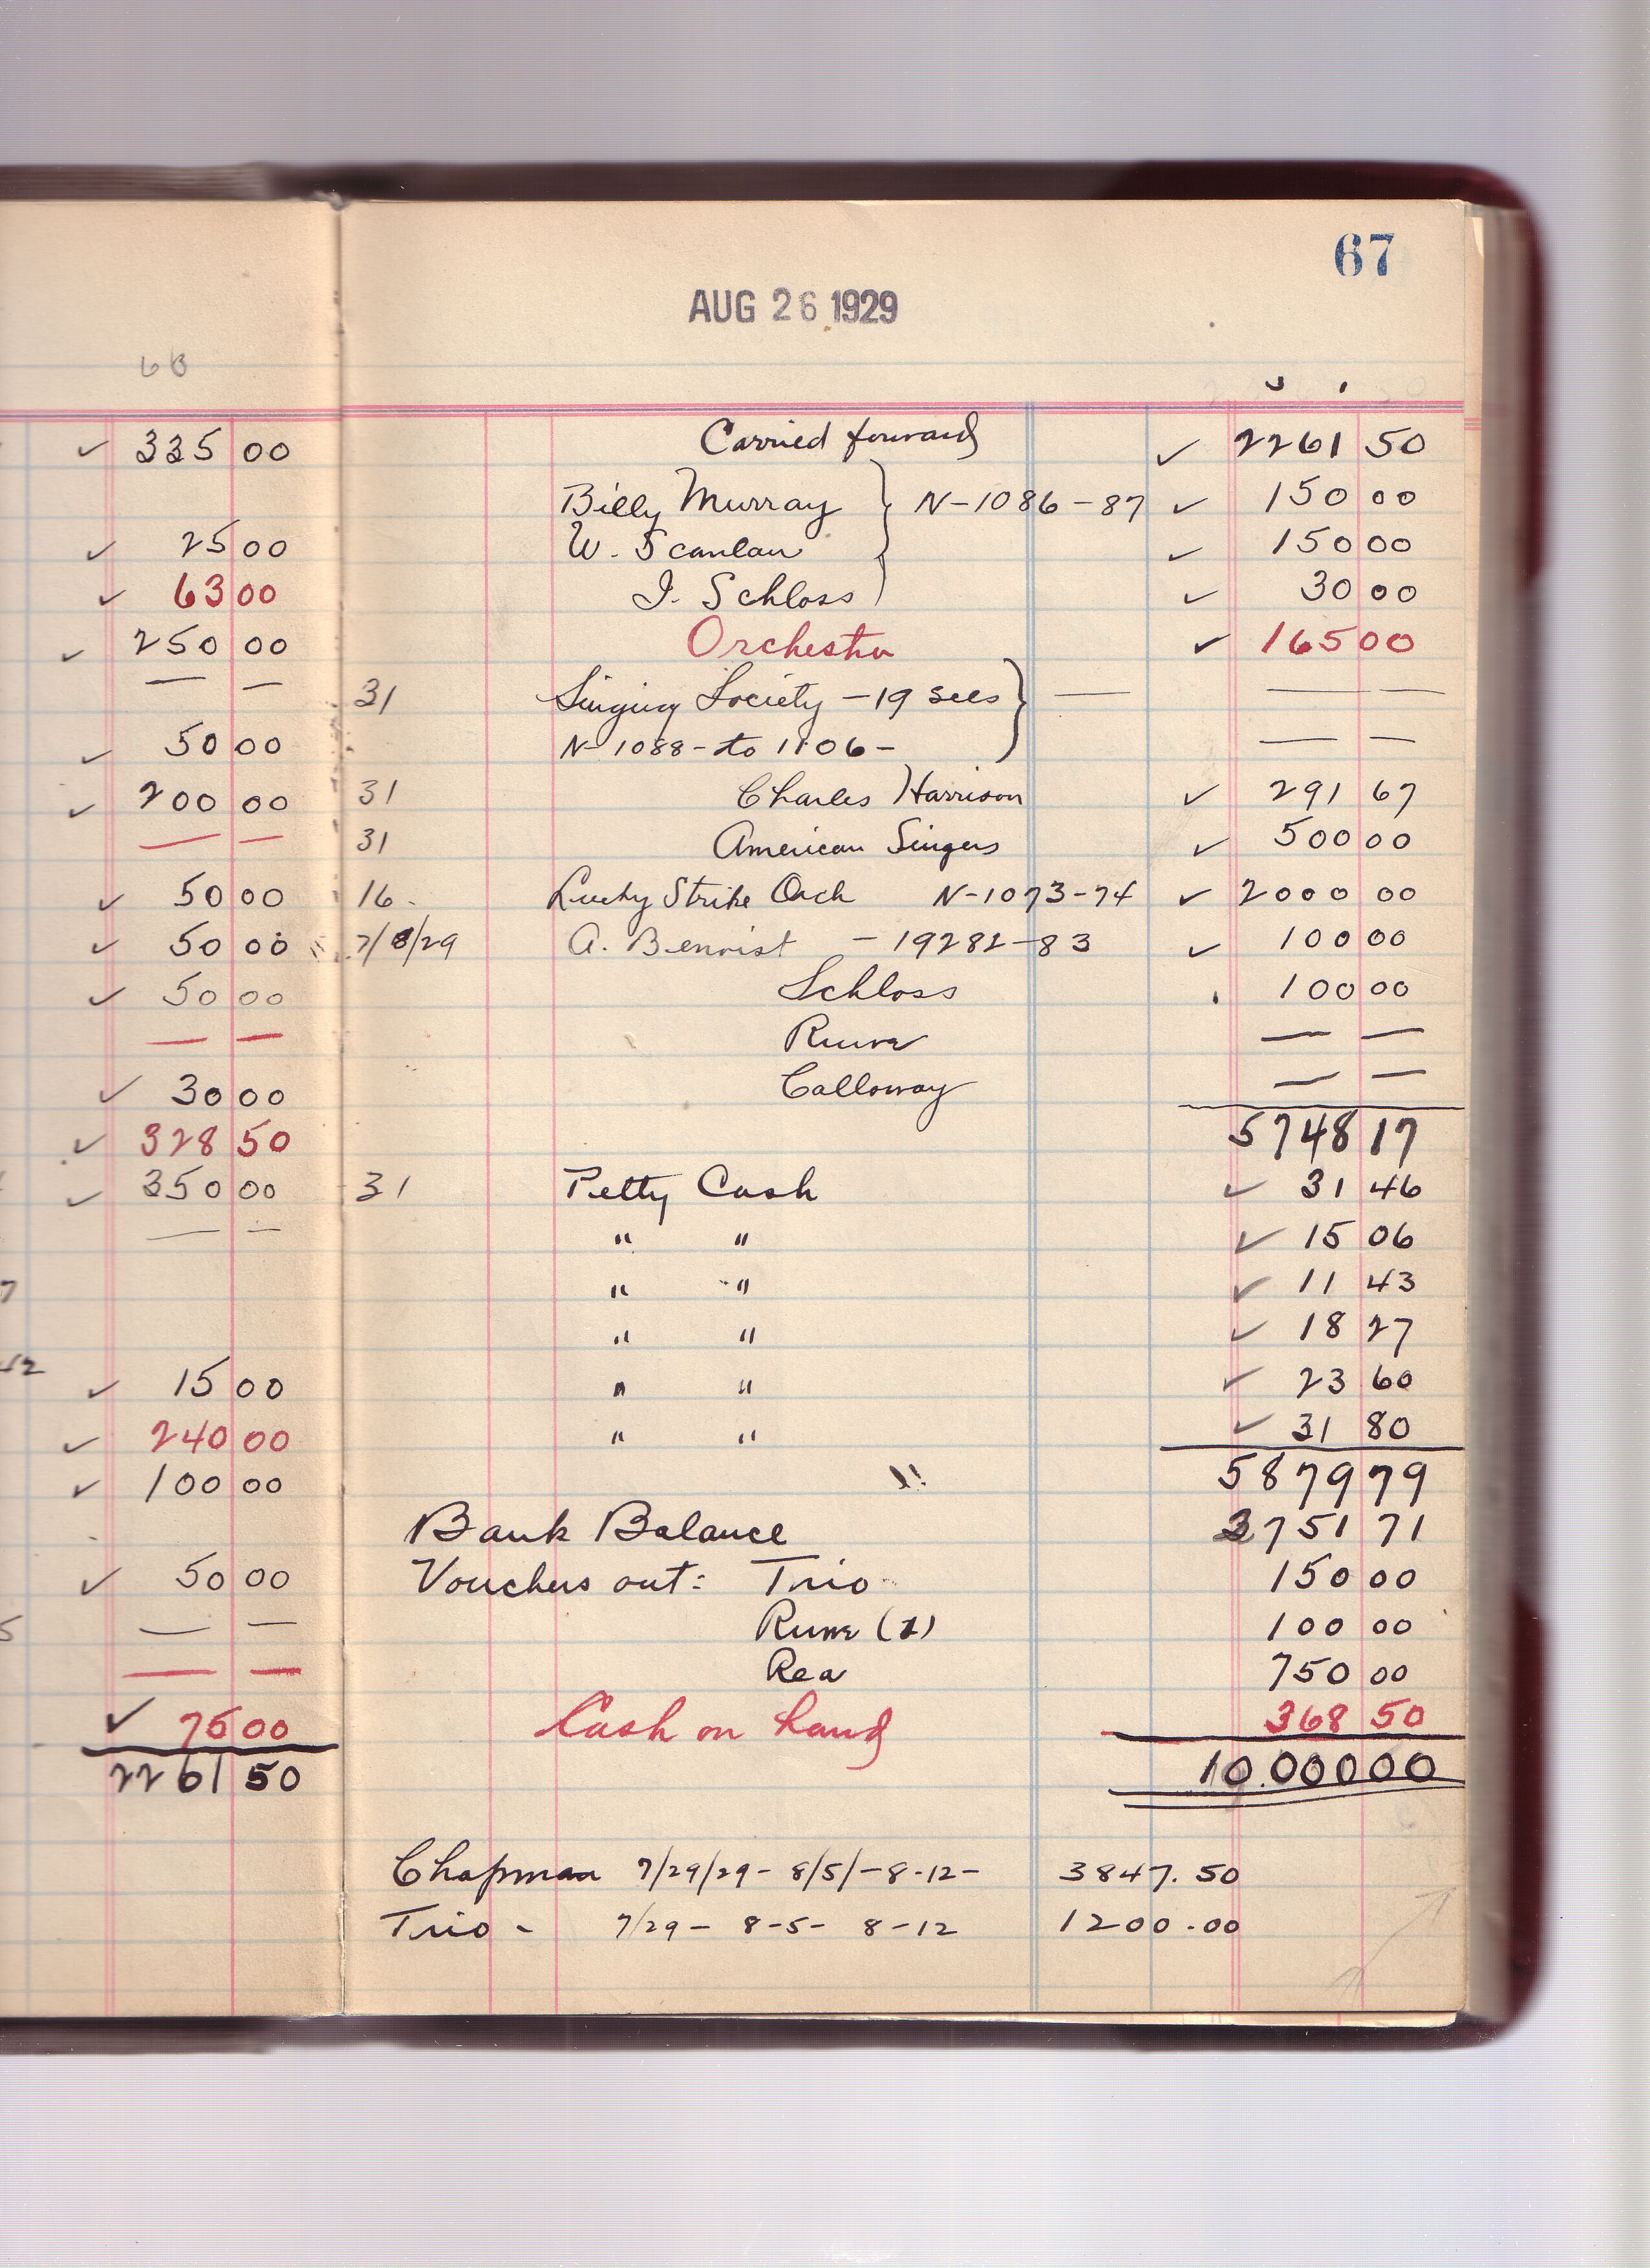 68
✓ 335 00
✓ 25 00
✓ 63 00
✓ 250 00
— —
✓ 50 00
✓ 200 00
— —
✓ 50 00
✓ 50 00
✓ 50 00
— —
✓ 30 00
✓ 328 50
✓ 350 00
— —
✓ 15 00
✓ 240 00
✓ 100 00
✓ 50 00
— —
— —
✓ 75 00
2261 50
67
AUG 26 1929
Carried forward ✓ 2261 50
Billy Murray } N-1086-87 ✓ 150 00
W. Scanlan ✓ 150 00
I. Schloss ✓ 30 00
Orchestra ✓ 165 00
31 Singing Society - 19 sels } — — —
N-1088- to 1106- — —
31 Charles Harrison ✓ 291 67
31 American Singers ✓ 500 00
16- Lucky Strike Orch N-1073-74 ✓ 2000 00
" 7/8/29 A. Benoist - 19282-83 ✓ 100 00
Schloss 100 00
— —
Calloway — —
5748 17
31 Petty Cash ✓ 31 46
" " ✓ 15 06
" " ✓ 11 43
" " ✓ 18 27
" " ✓ 23 60
" " ✓ 31 80
5879 79
Bank Balance 3751 71
Vouchers out: Trio 150 00
(2) 100 00
Rea 750 00
Cash on hand 368 50
10.000 00
Chapman 7/29/29- 8/5/-8-12- 3847.50
Trio - 7/29- 8-5- 8-12 1200.00